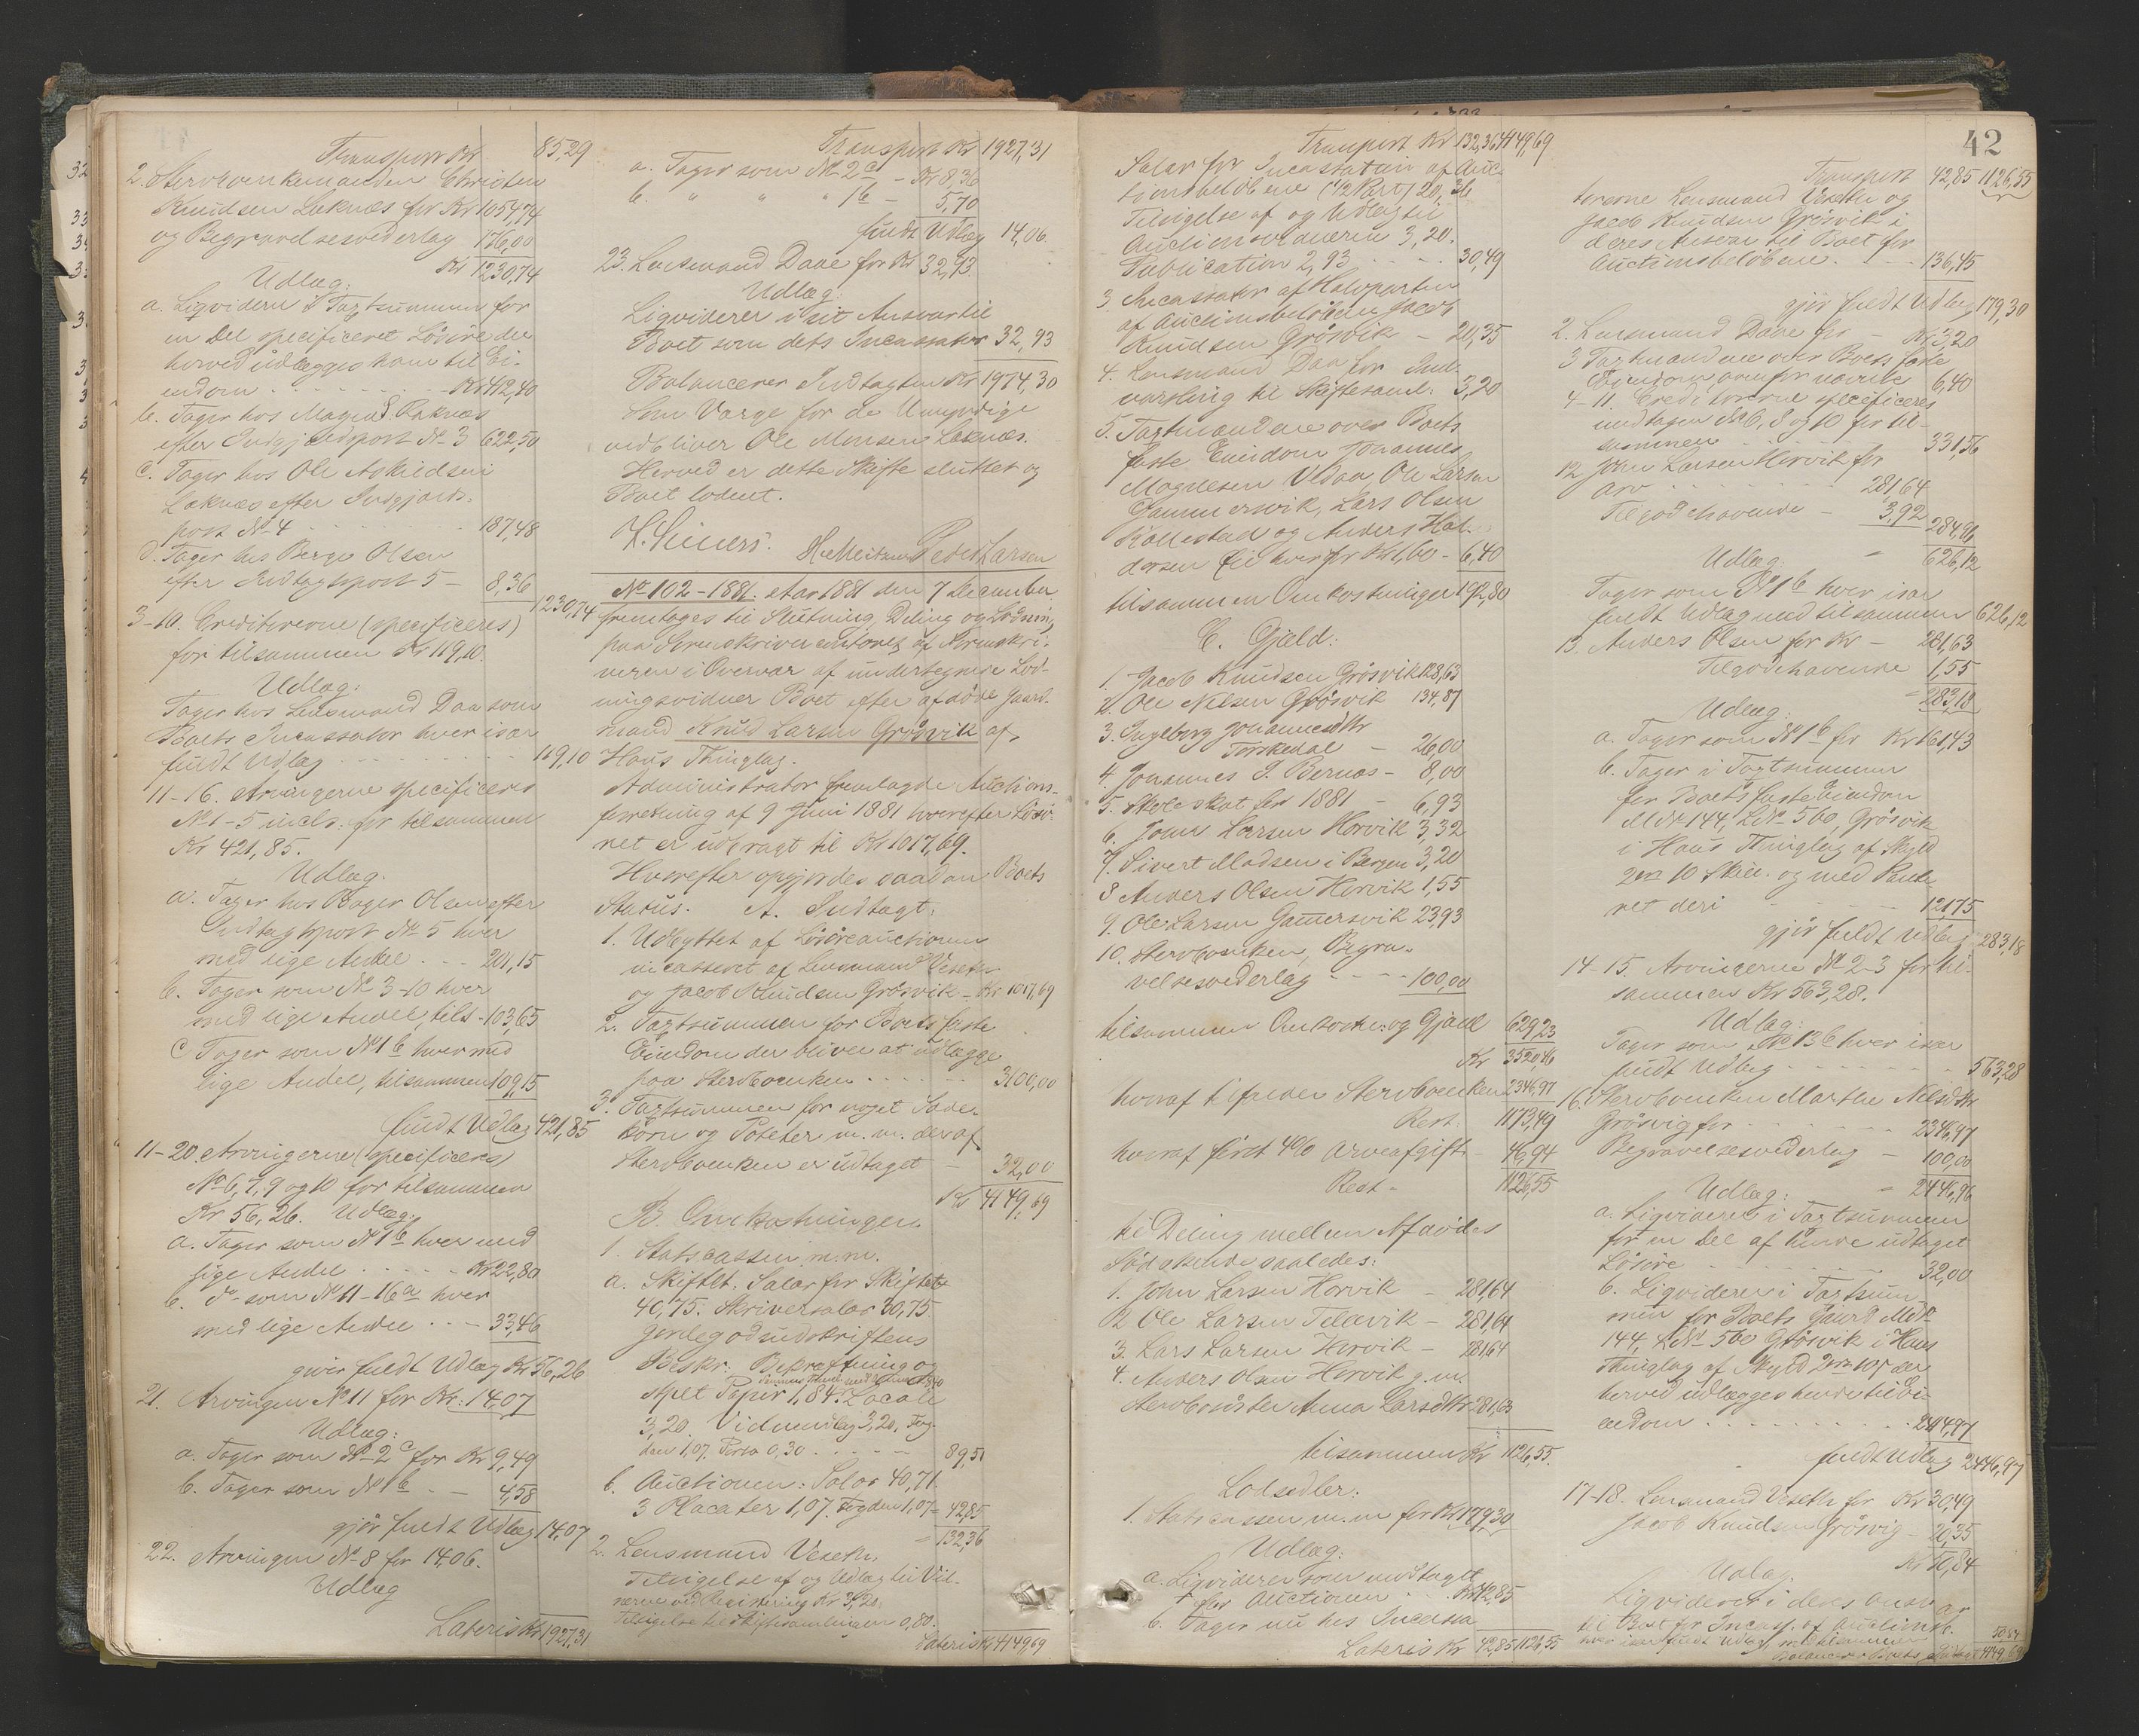 Transport Kr 85,29
2. Stervboenkemanden Christen
Knudsen Loknæs for Kr 1054,74
og Begravelsesvederlag 176,00
Kr 1230,74
Udlæg:
a. Liqviderer i Taxtsummen for
en Del specificeret Løsøre der
herved udlægges ham til Ei-
endom - - - Kr 412,40
b. Tager hos Magne S. Loknæs
efter Indgjældspost No 3 622,50
c. Tager hos Ole Askildsen
Loknæs efter Indgjælds-
post No 4 - - - 187,48
d. Tager hos Berge Olsen
efter Indtagtspost 5 - 8,36
1230,74
3-10. Creditorerne (specificeres)
for tilsammen Kr 119,10.
Udlæg:
Tager hos Lensmand Daae som
Boets Incassator hver især
fuldt Udlæg - - - 119,10
11-16. Arvingerne specificeres
No 1-5 incl. for tilsammen
Kr 421,85.
Udlæg.
a. Tager hos Berge Olsen efter
Indtagtspost No 5 hver
med lige Andel - - - 201,15
b. Tager som No 3-10 hver
med lige Andel, tils - 103,65
c. Tager som No 1 b hver med
lige Andel, tilsammen 109,15
fuldt Udlæg 421,85
11-20. Arvingerne (specificeres)
No 6, 7, 9 og 10 for tilsammen
Kr 56,26. Udlæg:
a. Tager som No 1 b hver med
lige Andel - - - Kr 22,80
b. do som No 11-16 a hver
med lige Andel - - - 33,46
gjør fuldt Udlæg Kr 56,26
21. Arvingen No 11 for Kr: 14,07
Udlæg:
a. Tager som No 2 c for Kr 9,49
b. Tager som No 1 b - - 4,58
gjør fuldt Udlæg 14,07
22. Arvingen No 8 for 14,06.
Udlæg
Lateris Kr 1927,31
Transport Kr 1927,31
a. Tager som No 2 d - Kr 8,36
b. " " " 1 b - 5,70
fuldt Udlæg 14,06
23. Lensmand Daae for Kr 32,93
Udlæg:
Liqviderer i sit Ansvar til
Boet som dets Incassator 32,93
Balancerer Indtagten Kr 1974,30
Som Værge for de Umyndige
vedbliver Ole Monsen Loknæs.
Herved er dette Skifte sluttet og
Boet loddet.
Peder Larsen
No 102-1881. Aar 1881 den 7 December
fremtoges til Slutning, Deling og Lodning
paa Sorenskrivercontoret af Sorenskri-
veren i Overvær af undertegnede Lod-
ningsvidner Boet efter afdøde Gaard-
mand Knud Larsen Grøsvik af
Haus Thinglag.
Administrator fremlagde Auctions-
forretning af 9 Juni 1881 hvorefter Løsø-
ret er udbragt til Kr 1017,69.
Hvorefter opgjordes saadan Boets
Status. A. Indtagt:
1. Udbyttet af Løsøreauctionen
incasseret af Lensmand Veseth
og Jacob Knudsen Grøsvik - Kr 1017,69
2. Taxtsummen for Boets faste
Eiendom der bliver at udlægge
paa Stervboenken - - - 3100,00
3. Taxtsummen for noget Sæde-
korn og Poteter m. m. der af
Stervboenken er udtaget - 32,00
Kr 4149,69
B. Omkostninger.
1. Statscassen m. m.
a. Skiftet. Salær for Skiftet
40,75. Skriversalær 30,75.
Jordegodsudskriftens
Beskr: Bekræftning og
stplt Papir 1,84. Locale
3,20. Vidneudlæg 3,20. Fog-
den 1,07. Porto 0,30 - - - 89,51
b. Auctionen: Salær 40,71.
3 Placater 1,07. Fogden 1,07 - 42,85
- 132,36
2. Lensmand Veseth,
Tilsigelse af og Udlæg til Vid-
nerne ved Registrering Kr 3,20.
Tilsigelse til Skiftesamlingen 0,80.
Lateris Kr 4149,69
42
Transport Kr 132,36 4149,69
Salær for Incassation af Auc-
tionsbeløbene (1/2 Part) 20,36
Tilsigelse af og Udlæg til
Auctionsvidnerne 3,20.
Publication 2,93 - - - 30,49
3. Incassator af Halvparten
af Auctionsbeløbene Jacob
Knudsen Grøsvik - 20,35
4. Lensmand Daae for Ind-
varsling til Skiftesaml: 3,20
5. Taxtmændene over Boets
faste Eiendom Johannes
Magnesen Vedaa, Ole Larsen
Gammersvik, Lars Olsen
Kollestad og Anders Hal-
dorsen Eie hver for Kr 1,60 - 6,40
tilsammen Omkostninger 192,80
C. Gjæld:
1. Jacob Knudsen Grøsvik 128,63
2. Ole Nilsen Grøsvik 134,87
3. Ingeborg Johannesdtr
Torskedal - 26,00
4. Johannes J. Bernæs - 8,00
5. Skoleskat for 1881 - 6,93
6. John Larsen Horvik 3,32
7. Sivert Madsen i Bergen 3,20
8 Anders Olsen Horvik 1,55
9. Ole Larsen Gamersvik 23,93
10. Stervboenken, Begra-
velsesvederlag - - - 100,00
tilsammen Omkostn: og Gjæld 629,23
Kr 3520,46
hvoraf tilfalder Stervboenken 2346,97
Rest. 1173,49
hvoraf først 4% Arveafgift - 46,94
Rest - 1126,55
til Deling mellem Afdødes
Sødskende saaledes:
1. John Larsen Horvik - 281,64
2 Ole Larsen Tellevik - 281,64
3. Lars Larsen Horvik - 281,64
4. Anders Olsen Horvik g. m.
Stervboets Søster Anna Larsdtr 281,63
tilsammen Kr 1126,55.
Lodsedler:
1. Statscassen m. m for Kr 179,30
Udlæg:
a. Liqviderer som modtaget
for Auctionen - - Kr 42,85
b. Tager nu hos Incassa
Lateris Kr 42,85 1126,55
Transport 42,85 1126,55
torerne Lensmand Veseth og
Jacob Knudsen Grøsvik i
deres Ansvar til Boet for
Auctionsbeløbene. - - 136,45
gjør fuldt Udlæg 179,30
2. Lensmand Daae for - Kr 3,20
3 Taxtmændene over Boets faste
Eiendom ovenfor nævnte 6,40
4-11. Creditorerne specificeres
undtagen No 6, 8 og 10 for til-
sammen - - - 331,56
12 John Larsen Horvik for
Arv - - - 281,64
Tilgodehavende - 3,92
284,96
Udlæg: - 626,12
Tager som No 1 b hver især
fuldt Udlæg med tilsammen 626,12
13. Anders Olsen for Kr - 281,63
Tilgodehavende 1,55
- 283,18
Udlæg:
a. Tager som No 1 b for Kr 161,43
b. Tager i Taxtsummen
for Boets faste Eiendom
M No 144, L No 560 Grøsvik
i Haus Thinglag af Skyld
2 ort 10 Skill. og med Pante-
ret deri - - - 121,75
gjør fuldt Udlæg 283,18
14-15. Arvingerne No 2-3 for til-
sammen Kr 563,28.
Udlæg:
Tager som No 13 b hver især
fuldt Udlæg - - - 563,28
16. Stervboenken Marthe Nilsdtr
Grøsvig for - - - 2346,97
Begravelsesvederlag - 100,00
Udlæg: - 2446,96
a. Liqviderer i Taxtsummen
for en Del af hende udtaget
Løsøre - - - 32,00
b. Liqviderer i Taxtsum-
men for Boets Gaard M No
144, L No 560 Grøsvik i Haus
Thinglag af Skyld 2 ort 10 s der
herved udlægges hende til Ei-
endom - - - 2414,97
fuldt Udlæg 2446,97
17-18. Lensmand Veseth for Kr 30,49
Jacob Knudsen Grøsvig - 20,35
Kr 50,84
Udlæg.
Liqviderer i deres Ansvar
til Boet for Incass. af Auctionsb.
hver især fuldt Udlæg med tilsammen 50,84
Balancerer Boets Indtægt 4149,69